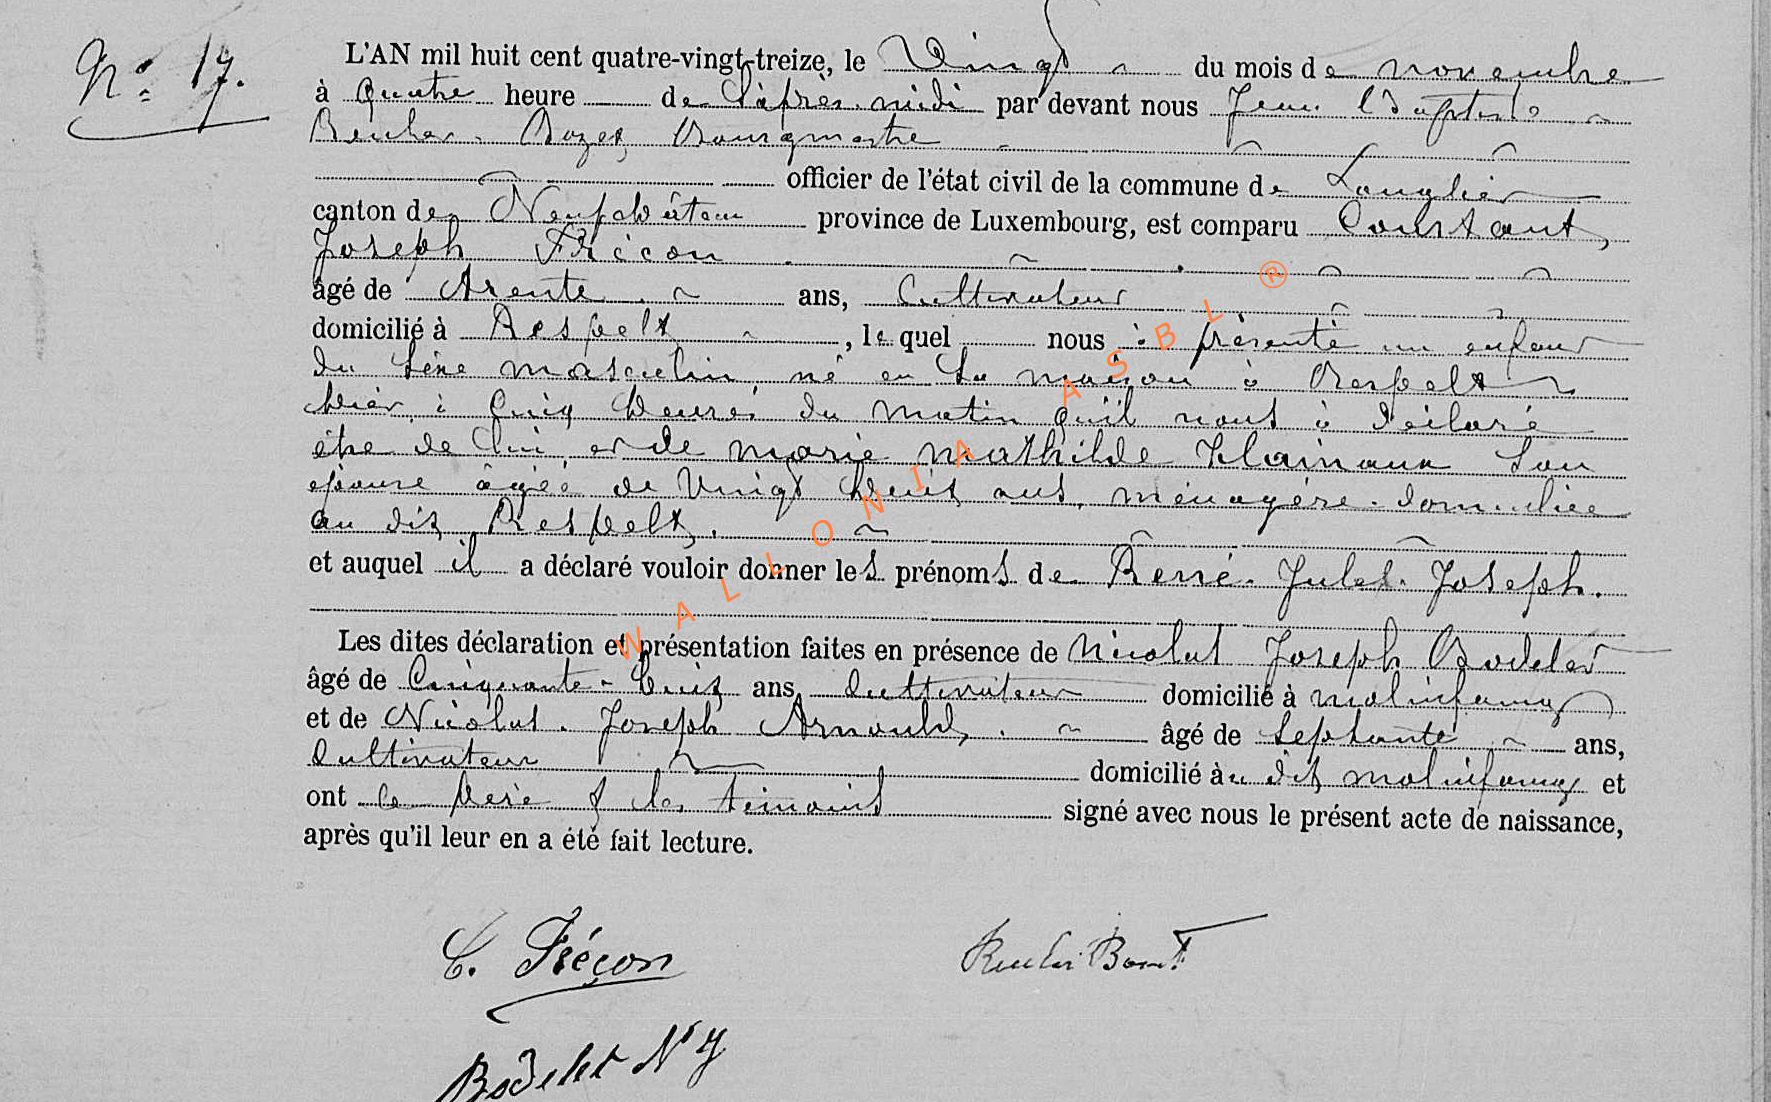 N° 17.
L'AN mil huit cent quatre-vingt-treize, le Vingt du mois de novembre
à Quatre heure de l'après-midi par devant nous Jean Baptiste
Bourgmestre
officier de l'état civil de la commune de Longlier
canton de Neufchâteau province de Luxembourg, est comparu Constant,
Joseph Friçon
âgé de trente ans, Cultivateur
domicilié à Respelt, le quel nous à présenté un enfant
du sèxe masculin, né en Sa maison à Respelt
hièr à Cinq heures du matin qu'il nous à déclaré
être de lui et de marie mathilde Hainaux Son
épouse âgée de Vingt huit ans, ménagère domiciliée
au dit Respelt.
et auquel il a déclaré vouloir donner les prénoms de René. Jules. Joseph.
Les dites déclaration et présentation faites en présence de Nicolas Joseph Bodelet
âgé de Cinquante-huit ans, Cultivateur domicilié à molinfaing
et de Nicolas. Joseph Arnould, âgé de Septante ans,
Cultivateur domicilié au dit molinfaing et
ont le père & les témoins signé avec nous le présent acte de naissance,
après qu'il leur en a été fait lecture.
C. Fréçon
Bodelet N J
WALLONIA ASBL ®